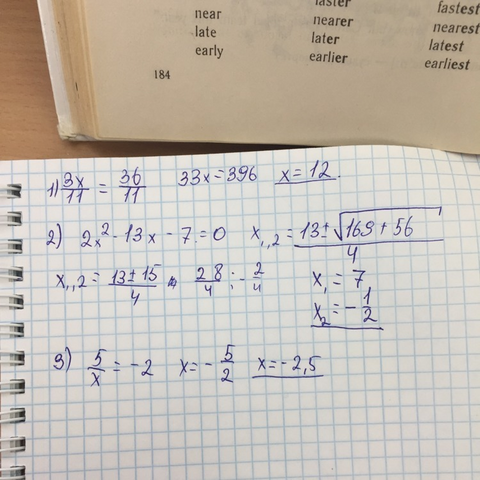 faster fastest
near nearer nearest
late later latest
early earlier earliest
184
1) 3x/11 = 36/11 33x=396 x=12.
2) 2x² - 13x - 7 = 0 x₁,₂ = 13±√169+56/4
x₁,₂ = 13±15/4 28/4 ; -2/4 x₁ = 7
x₂ = -1/2
3) 5/x = -2 x = -5/2 x=-2,5